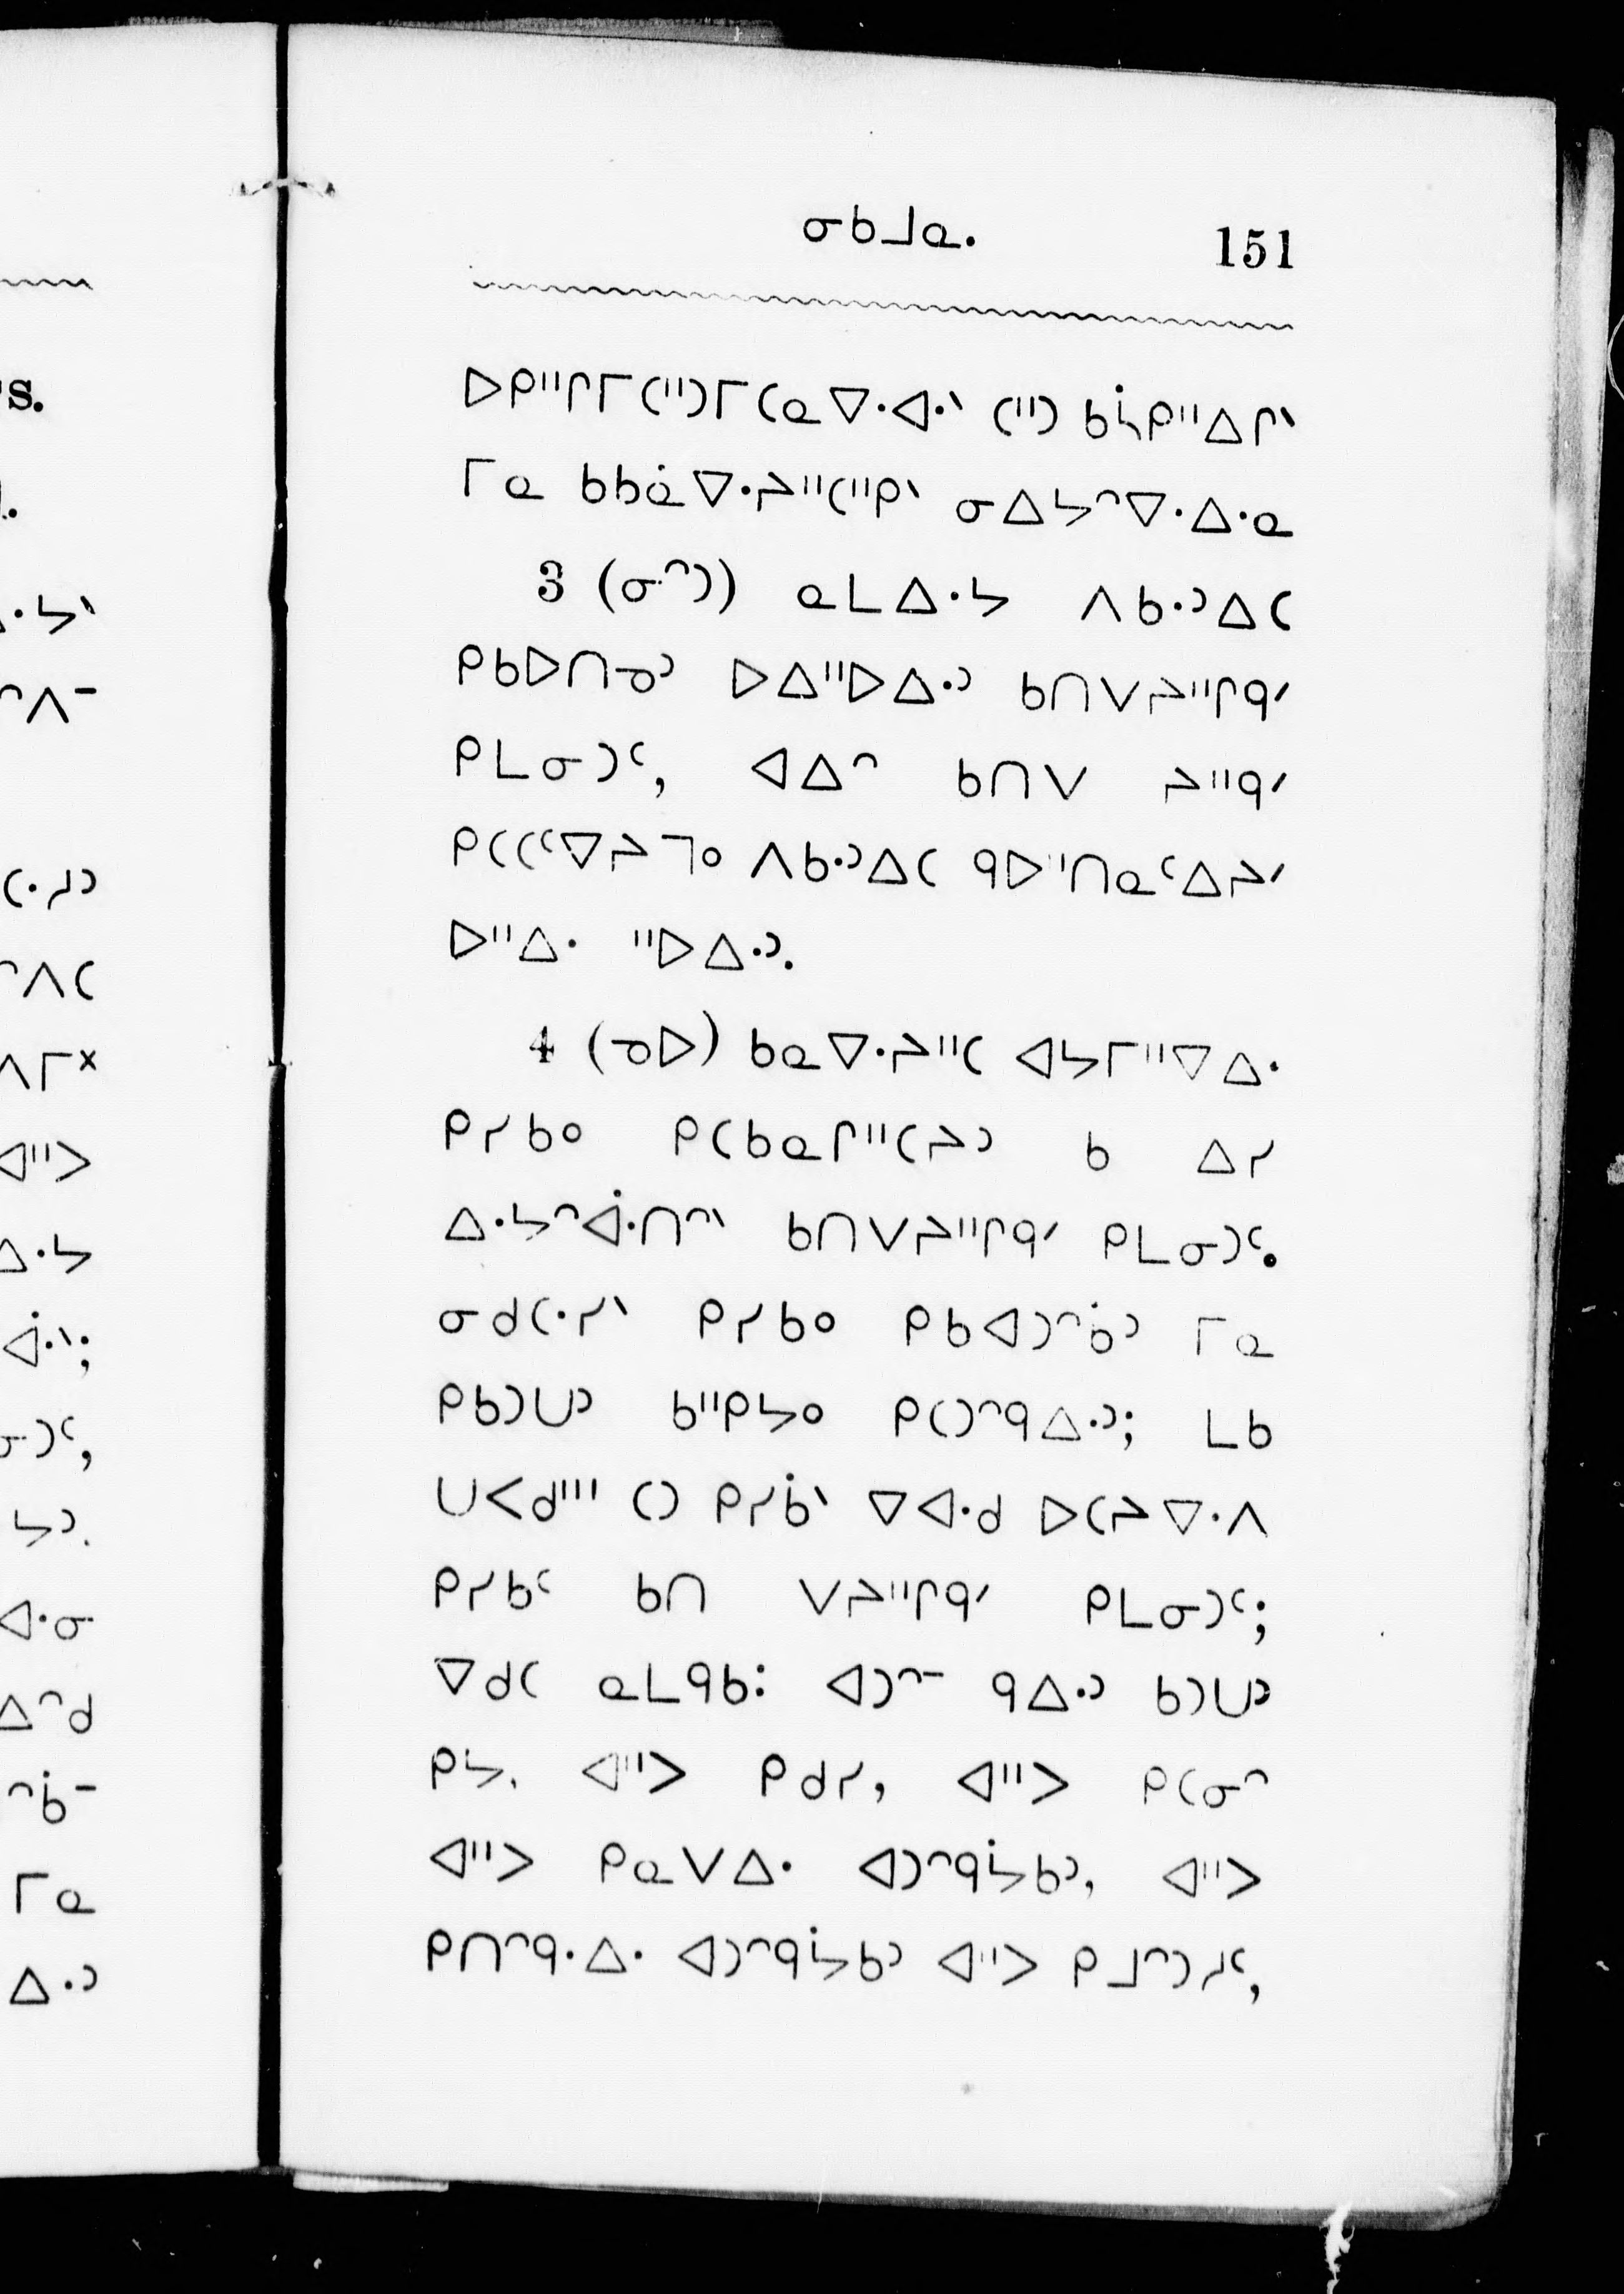 ᓂᑲᒧᓇ. 151
ᐅᑭᐦᒋᒥᑕᐦᑐᒥᑕᓇᐁᐧᐊᐧᐠ ᑕᐦᑐ ᑲᔮᑭᐦᐃᒋᐠ
ᒥᓇ ᑲᑲᓈᐁᐧᔨᐦᑕᐦᑭᐠ ᓂᐃᔭᐢᐁᐧᐃᐧᓇ
3 (ᓂᐢᑐ) ᓇᒪᐃᐧᔭ ᐱᑲᐧᐣᐃᑕ
ᑭᑲᐅᑎᓀᐣ ᐅᐃᐦᐅᐃᐧᐣ ᑲᑎᐯᔨᐦᒋᑫᐟ
ᑭᒪᓂᑐᑦ, ᐊᐃᐢ ᑲᑎᐯ ᔨᐦᑫᐟ
ᑭᑕᑕᑦᐁᔨᒣᐤ ᐱᑲᐧᐣᐃᑕ ᑫᐅᐦᑎᓇᑦᐃᔨᐟ
ᐅᐦᐃᐧ ᐦᐅᐃᐧᐣ.
4 (ᓀᐅ) ᑲᓇᐁᐧᔨᐦᑕ ᐊᔭᒥᐦᐁᐃᐧ
ᑭᓯᑲᐤ ᑭᑕᑲᓇᒋᐦᑕᔨᐣ ᑲ ᐃᓯ
ᐃᐧᔭᐢᐋᐧᑎᐢᐠ ᑲᑎᐯᔨᐦᒋᑫᐟ ᑭᒪᓂᑐᑦ.
ᓂᑯᑕᐧᓯᐠ ᑭᓯᑲᐤ ᑭᑲᐊᑐᐢᑳᐣ ᒥᓇ
ᑭᑲᑐᑌᐣ ᑲᐦᑭᔭᐤ ᑭᑕᑐᐢᑫᐃᐧᐣ; ᒪᑲ
ᑌᐸᑯᐦᑊ ᑕᑐ ᑭᓯᑳᐠ ᐁᐊᐧᑯ ᐅᑕᔨᐁᐧᐱ
ᑭᓯᑲᑦ ᑲᑎ ᐯᔨᐦᒋᑫᐟ ᑭᒪᓂᑐᑦ;
ᐁᑯᑕ ᓇᒪᑫᑲᐧᕀ ᐊᑐᐢ⁻ ᑫᐃᐧᐣ ᑲᑐᑌᐣ
ᑭᔭ, ᐊᐦᐳ ᑭᑯᓯ, ᐊᐦᐳ ᑭᑕᓂᐢ
ᐊᐦᐳ ᑭᓇᐯᐃᐧ ᐊᑐᐢᑫᔮᑲᐣ, ᐊᐦᐳ
ᑭᑎᐢᑫᐧᐃᐧ ᐊᑐᐢᑫᔮᑲᐣ ᐊᐦᐳ ᑭᒧᐢᑐᓱᑦ,